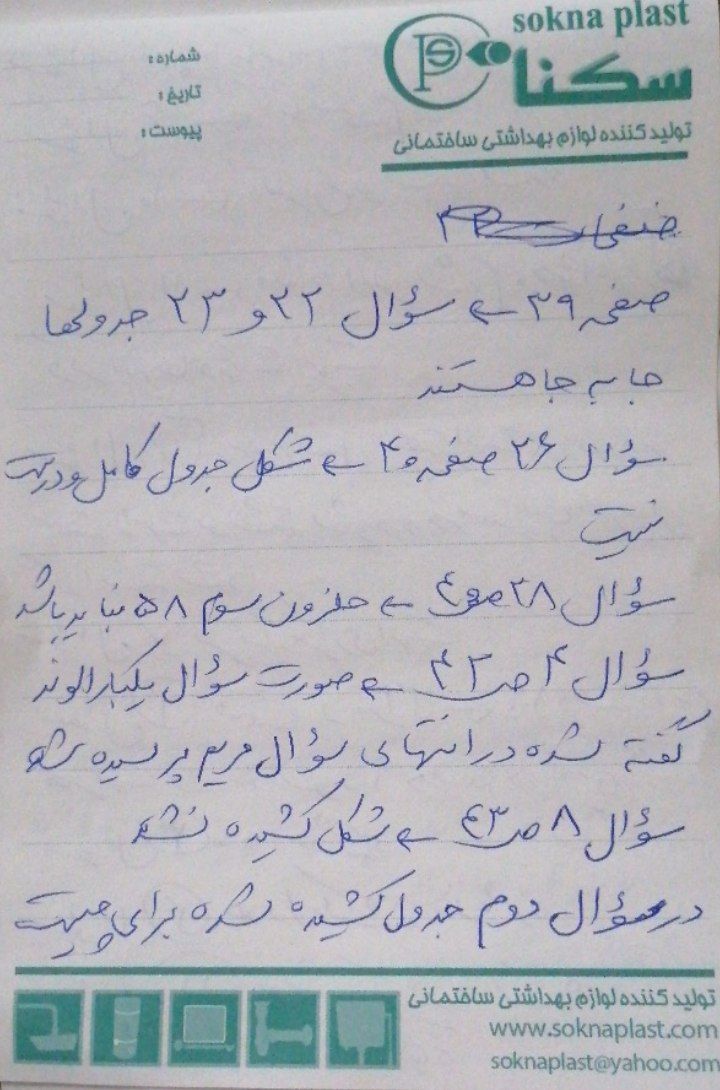 sokna plast
سکنا
تولید کننده لوازم بهداشتی ساختمانی
شماره:
تاریخ:
پیوست:
صفحه ۳۹ ← سؤال ۲۲ و ۲۳ جدولها
جا به جا هستند
سؤال ۲۶ صفحه ۴۰ ← شکل جدول کامل و درست
نیست
سؤال ۲۸ ← حلزون سوم ۵۸ نباید باشد
سؤال ۴ ص ۴۲ ← صورت سؤال یکبار الوند
گفته شده در انتهای سؤال مریم پرسیده شده
سؤال ۸ ص ۴۳ ← شکل کشیده نشده
در سؤال دوم جدول کشیده شده برای چیست
تولید کننده لوازم بهداشتی ساختمانی
www.soknaplast.com
soknaplast@yahoo.com